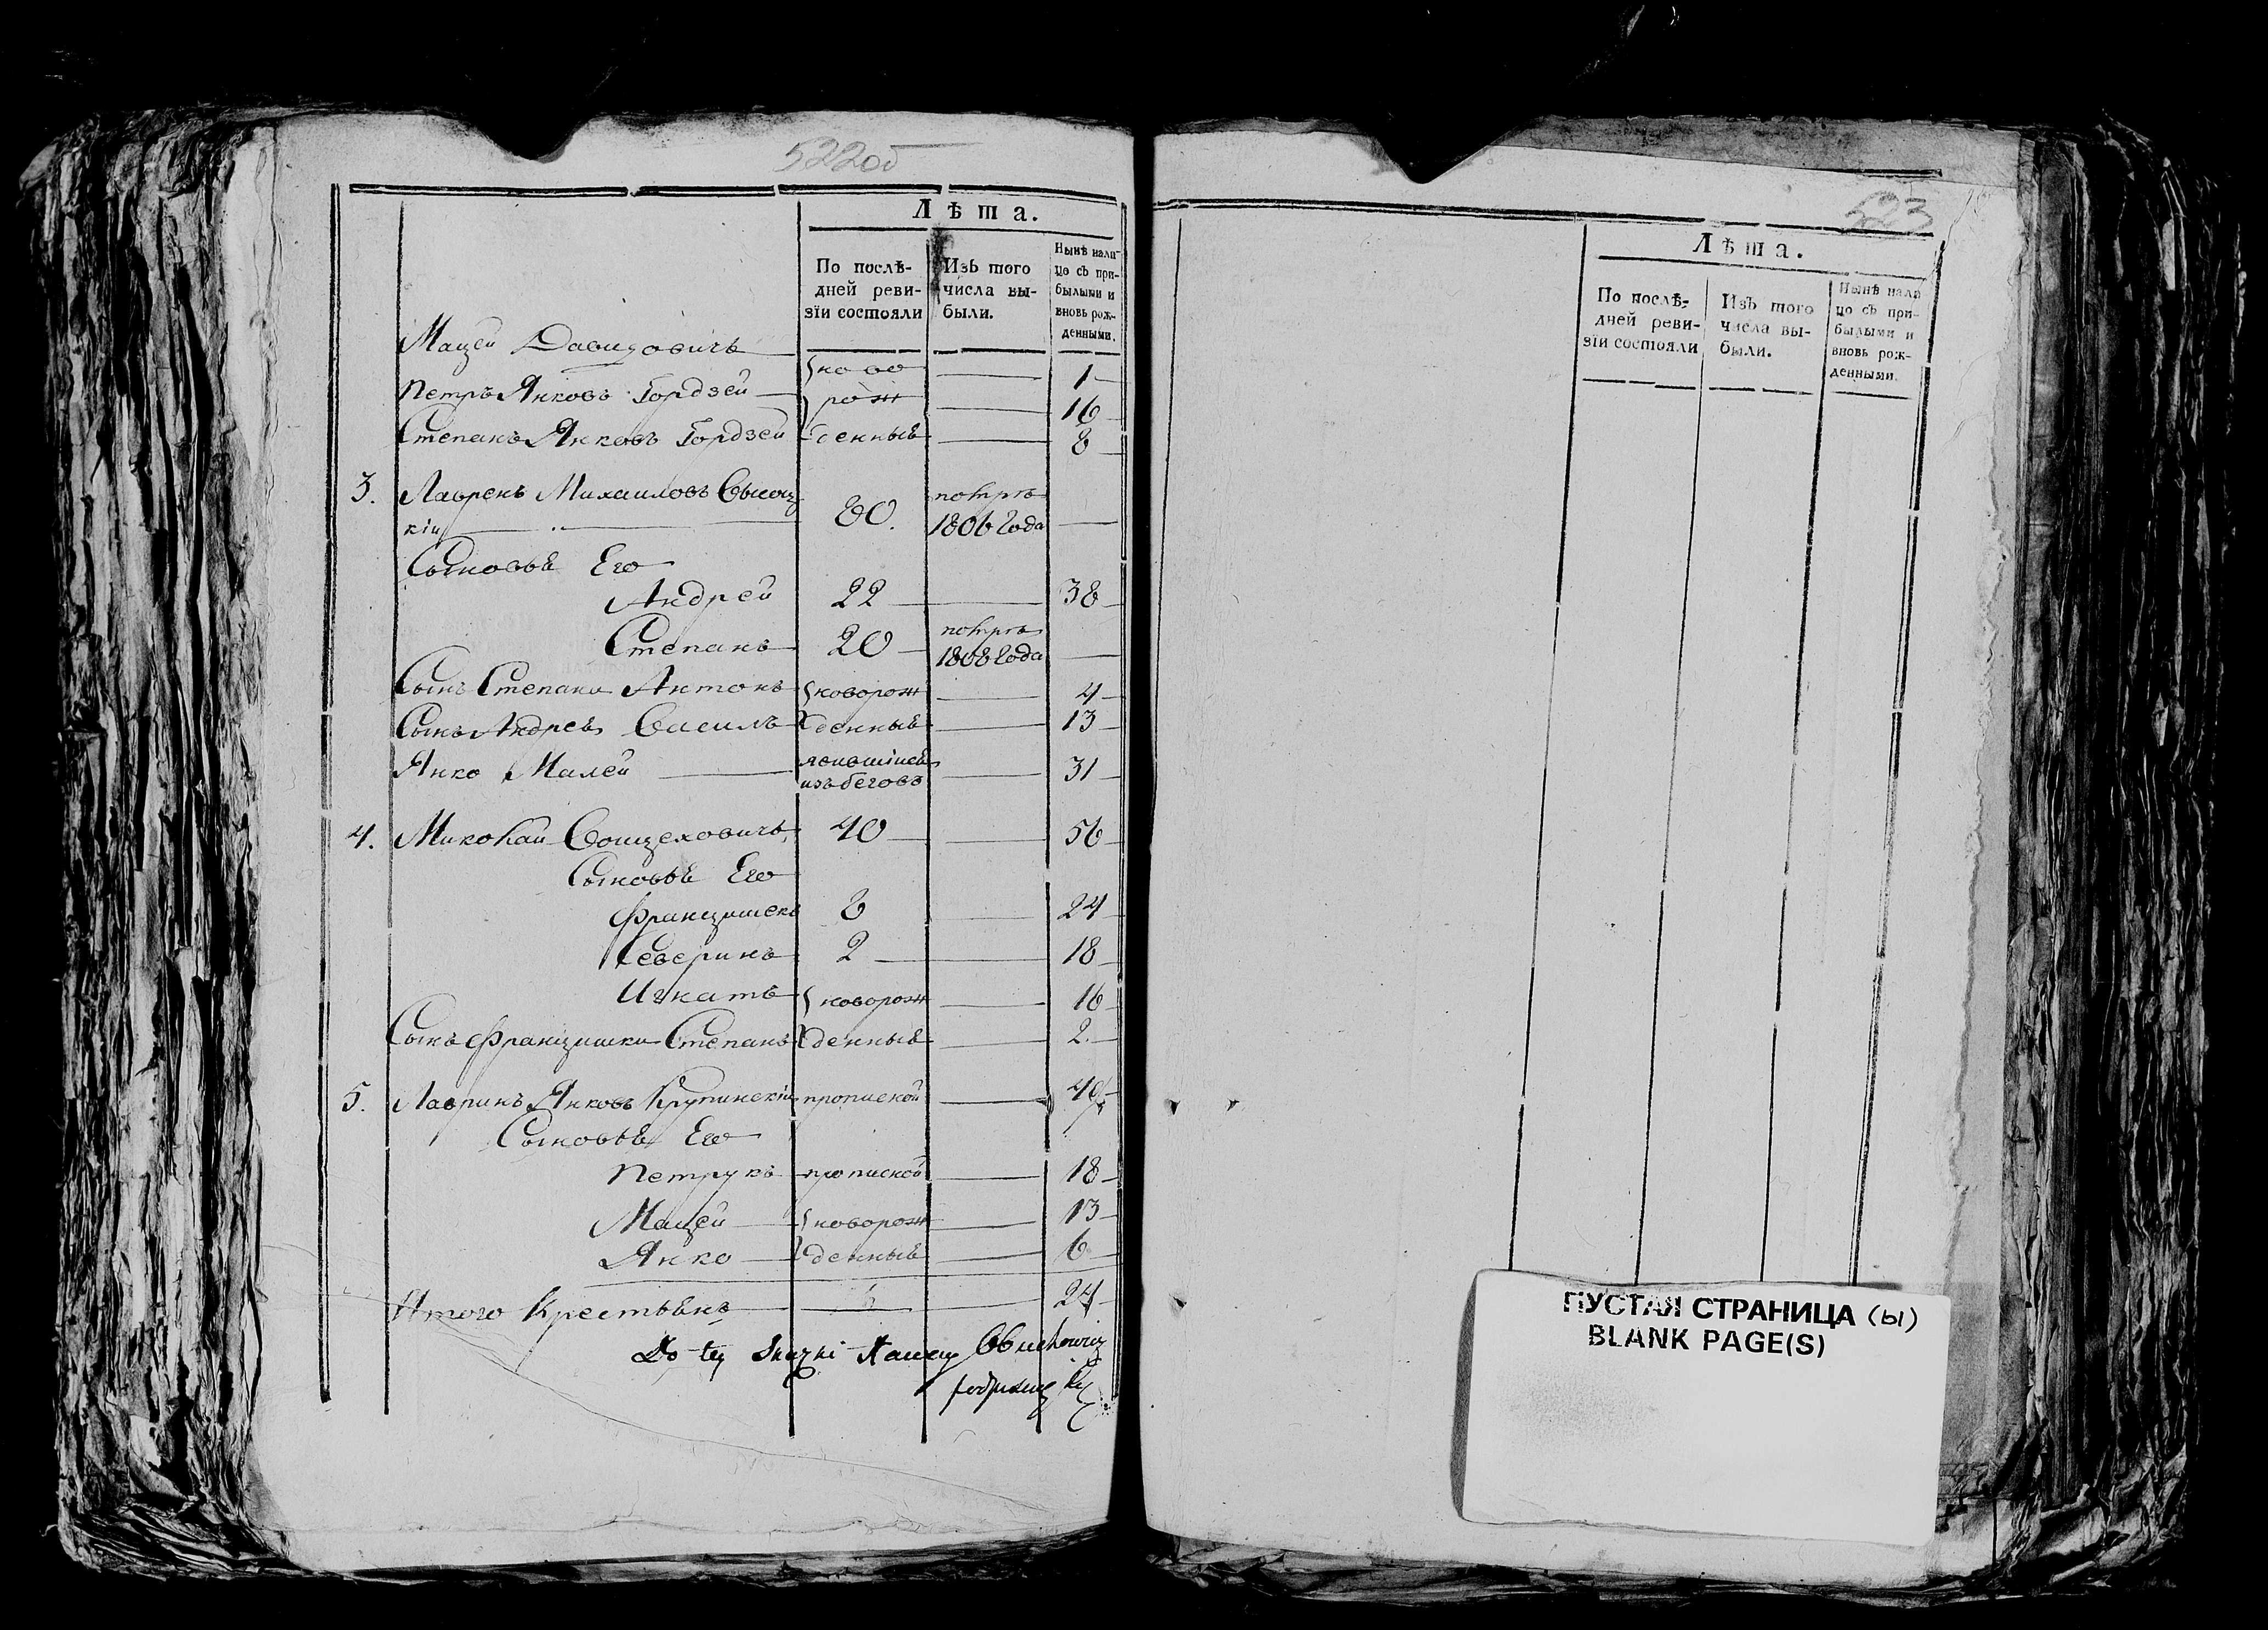 522об
Лѣта.
По послѣ-
дней реви-
зїи состояли
Изъ того
числа вы-
были.
Нынѣ нали-
цо съ при-
былыми и
вновь рож-
денными.
Мацей Давидовичъ ново 1
Петръ Янковъ Гордзей рож 16
Степанъ Янковъ Гордзей денныѣ 8
3. Лаврен Михаиловъ Высоц 80. 1806 года
кій
Сыновьѣ Его
Андрей 22 38
Степанъ 20 1808 года
Сынъ Степана Антонъ новорож 4
Сынъ Андрея Василь денныѣ 13
Янко Малей явившійся 31
изъ бегов
4. Миколай Войцеховичъ 40 56
Сыновьѣ Его
Францишекъ 8 24
Северинъ 2 18
Игнатъ новорож 16
Сынъ Францишка Степанъ денныѣ 2.
5. Лавринъ Янковъ Крупинскій прописной 40
Сыновьѣ Его
Петрукъ прописной 18
Мацей новорож 13
Янко денныѣ 6
Итого Крестьянъ 24
Do tey Skazki
523
Лѣта.
По послѣ-
дней реви-
зїи состояли
Изъ того
числа вы-
были.
Нынѣ нали
цо съ при-
былыми и
вновь рож-
денными.
ПУСТАЯ СТРАНИЦА (Ы)
BLANK PAGE(S)